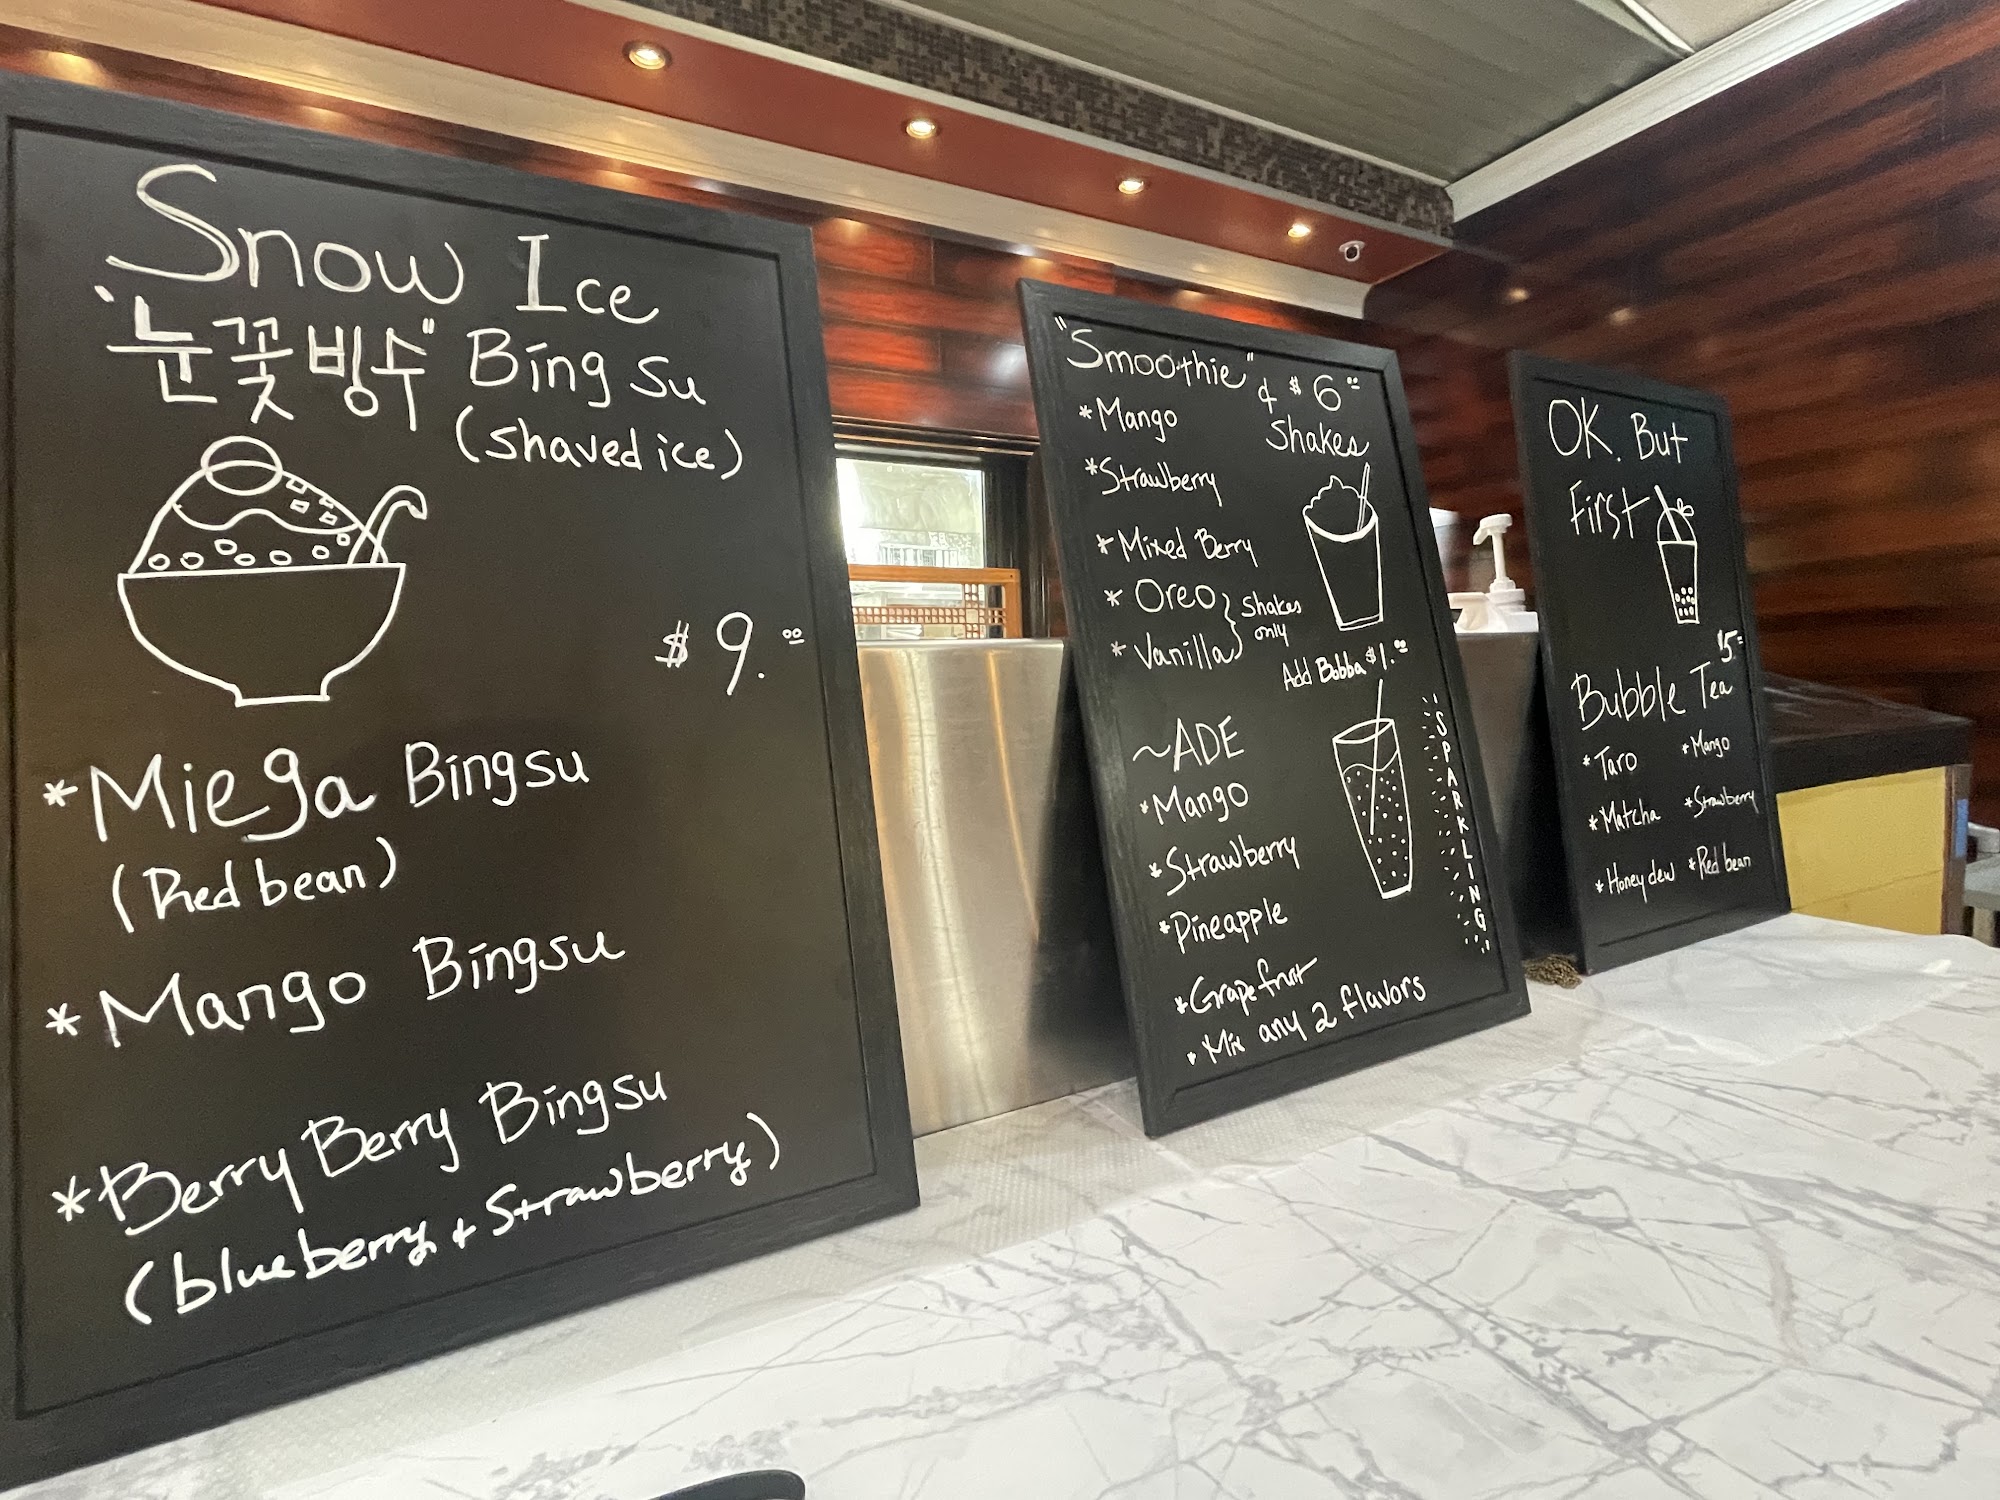 Snow Ice
"눈꽃빙수" Bing su
(shaved ice)
$9.00
*Miega Bingsu
(Red bean)
*Mango Bingsu
*Berry Berry Bingsu
(blueberry + Strawberry)
"Smoothie" & $6.00
Shakes
*Mango
*Strawberry
*Mixed Berry
*Oreo
*Vanilla
Shakes
only
Add Bobba $1.00
~ADE
*Mango
*Strawberry
*Pineapple
*Grapefruit
*Mix any 2 flavors
SPARKLING
OK. But
First
$5.=
Bubble Tea
*Taro *Mango
*Matcha *Strawberry
*Honeydew *Red bean